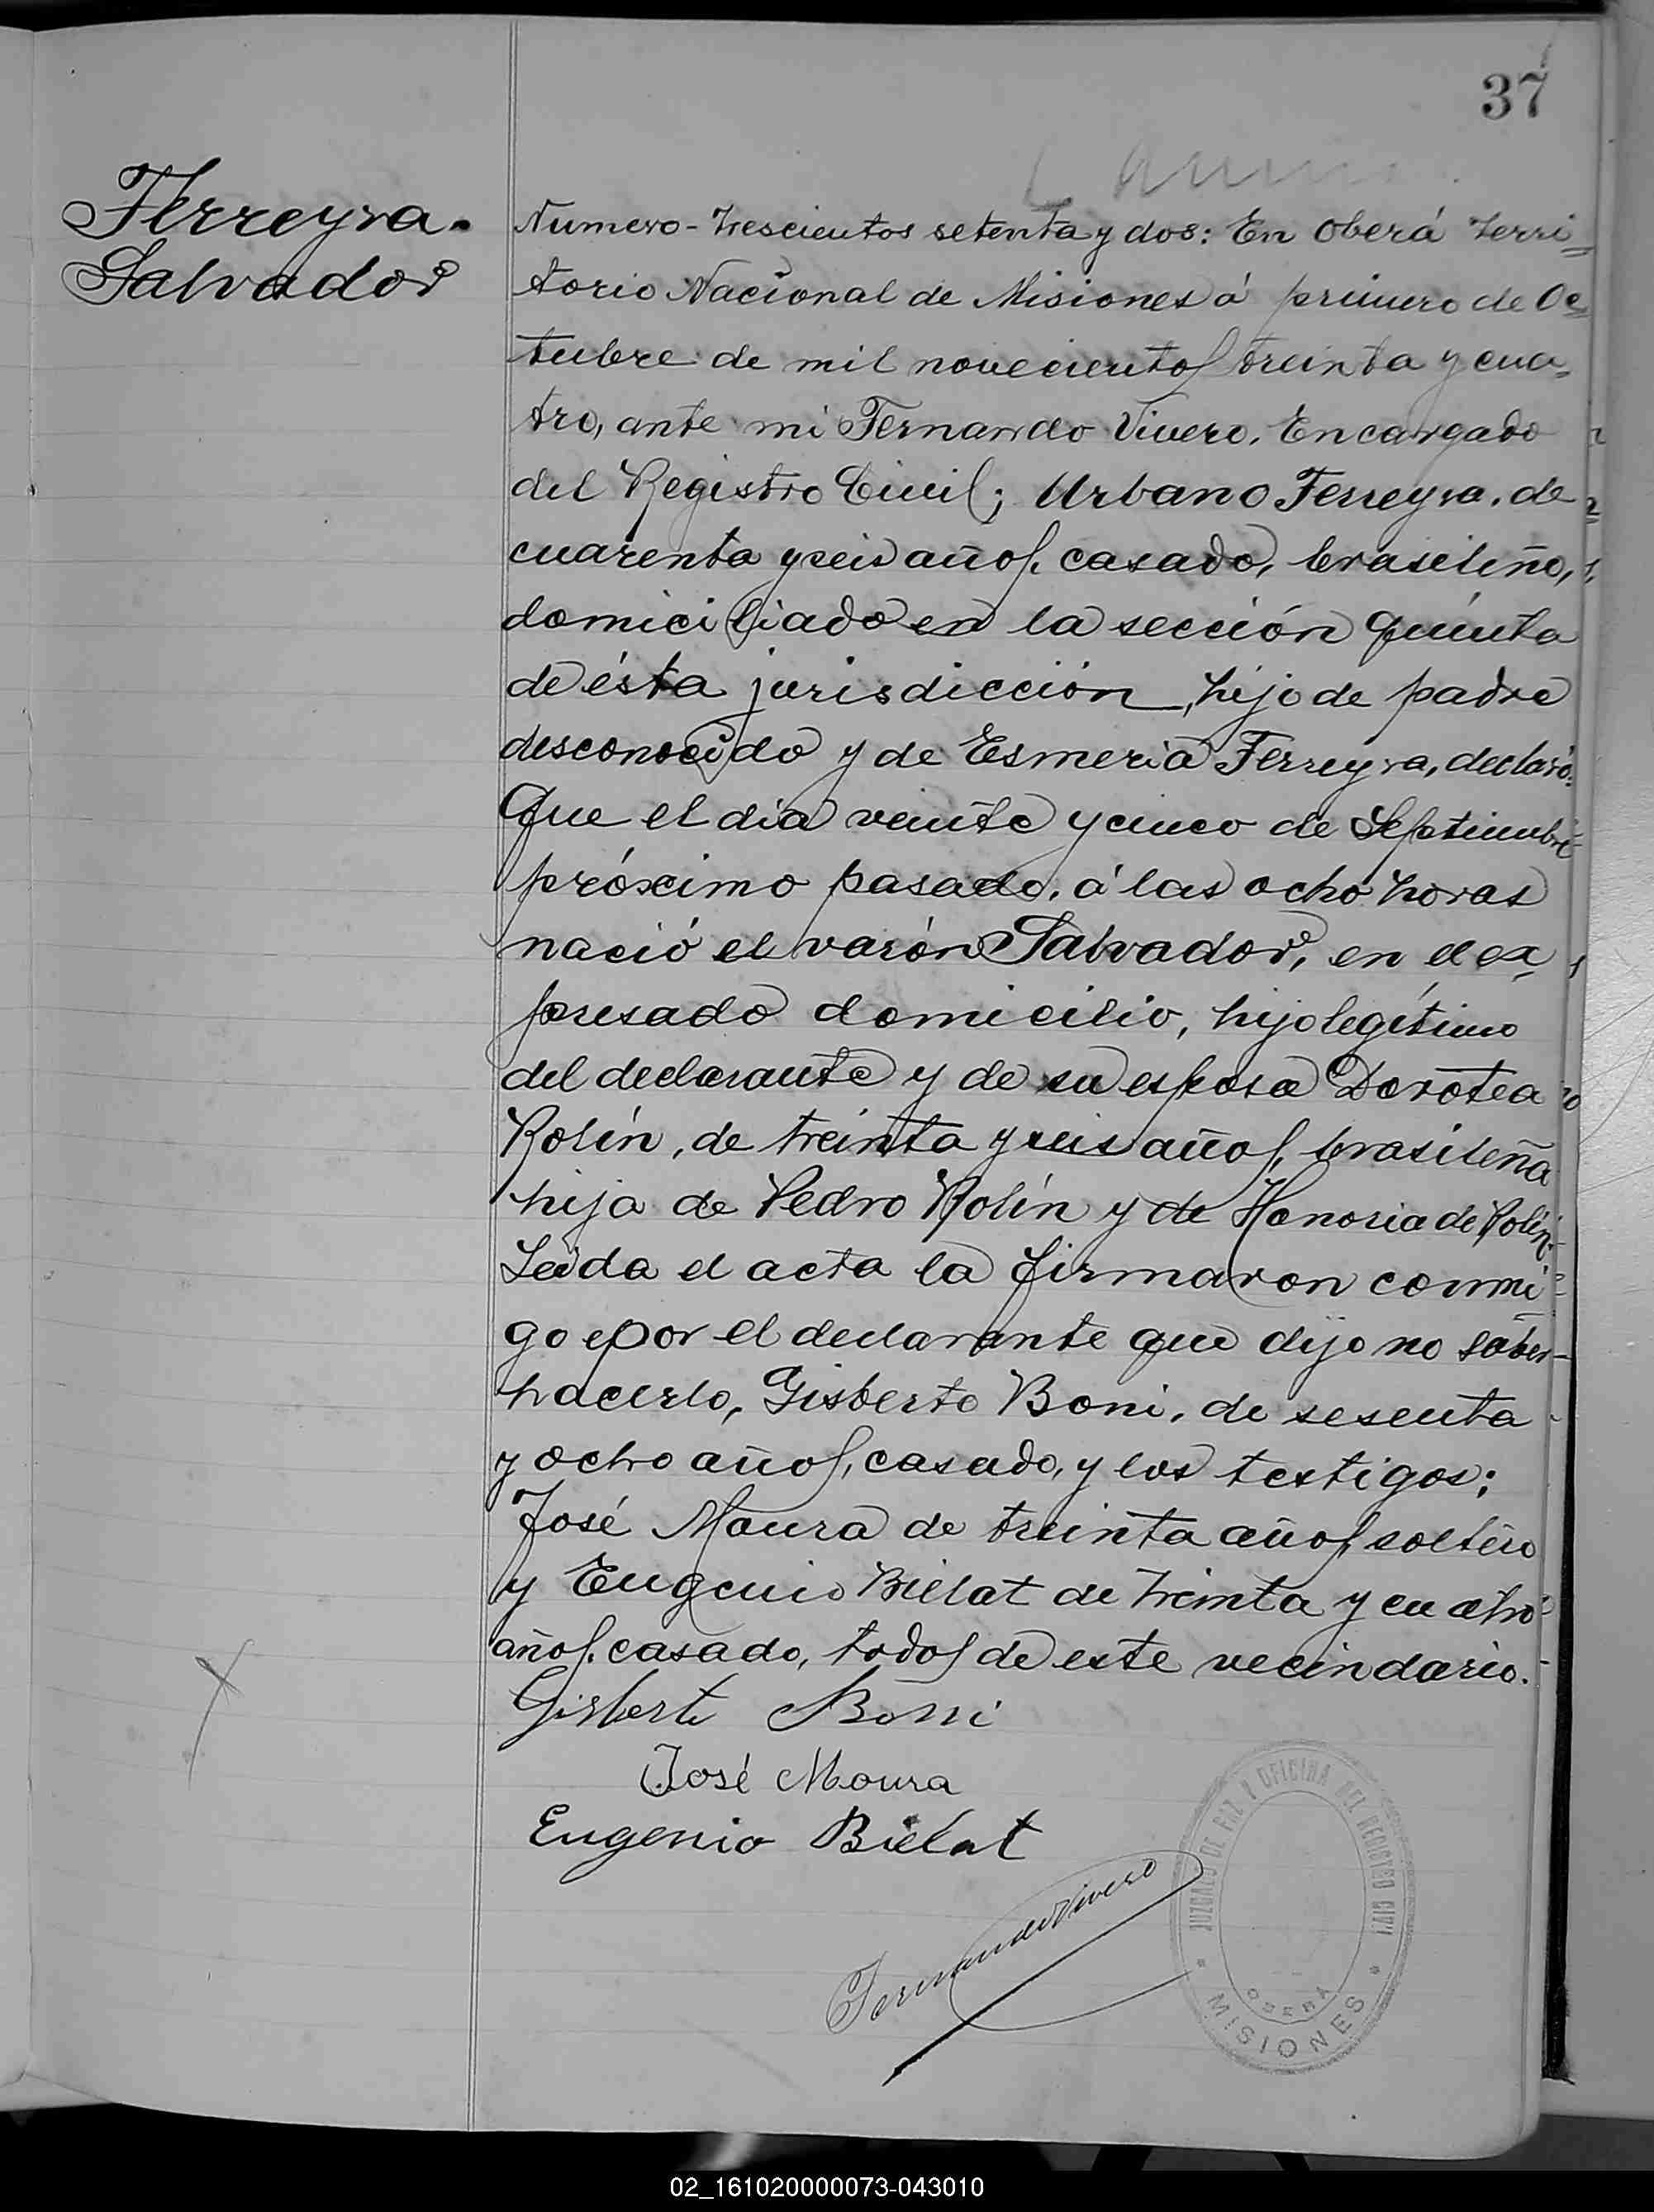 37
Ferreyra.
Salvador
Numero - Trescientos setenta y dos: En Oberá Terri=
torio Nacional de Misiones á primero de Oc=
tubre de mil novecientos treinta y cua=
tro, ante mi Fernando Vivero. Encargado
del Registro Civil; Urbano Ferreyra. de
cuarenta y seis años. casado, brasileño,
domiciliado en la sección quinta
de ésta jurisdicción, hijo de padre
desconocido y de Esmeria Ferreyra, declaró:
Que el dia veinte y cinco de Septiembre
próximo pasado, á las ocho horas
nació el varón Salvador, en el ex=
presado domicilio, hijo legítimo
del declarante y de su esposa Dorotea
Rolín, de treinta y seis años, brasileña
hija de Pedro Rolín y de Honoria de Rolín.
Leida el acta la firmaron conmi=
go e por el declarante que dijo no saber
hacerlo, Gisberto Boni, de sesenta
y ocho años, casado, y los testigos;
José Moura de treinta años, soltero
y Eugenio Bielat de treinta y cuatro
años. casado, todos de este vecindario.
Gisberto Boni
José Moura
Eugenio Bielat
Fernando Vivero
JUZGADO DE PAZ Y OFICINA DEL REGISTRO CIVIL
OBERÁ
* MISIONES *
02_161020000073-043010